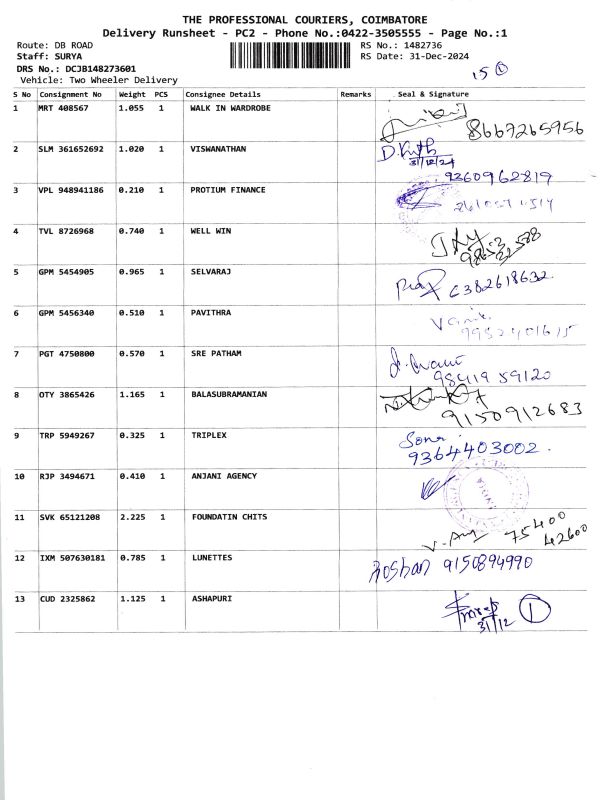 THE PROFESSIONAL COURIERS, COIMBATORE
Delivery Runsheet - PC2 - Phone No.:0422-3505555 - Page No.:1
Route: DB ROAD RS No.: 1482736
Staff: SURYA RS Date: 31-Dec-2024
DRS No.: DCJB148273601
Vehicle: Two Wheeler Delivery
15 1
S No Consignment No Weight PCS Consignee Details Remarks Seal & Signature
1 MRT 408567 1.055 1 WALK IN WARDROBE
8667265956
2 SLM 361652692 1.020 1 VISWANATHAN
31/12/24
9260962819
3 VPL 948941186 0.210 1 PROTIUM FINANCE
4 TVL 8726968 0.740 1 WELL WIN
5 GPM 5454905 0.965 1 SELVARAJ
6382618632
6 GPM 5456340 0.510 1 PAVITHRA
9952401615
7 PGT 4750800 0.570 1 SRE PATHAM
98419 59120
8 OTY 3865426 1.165 1 BALASUBRAMANIAN
9150912683
9 TRP 5949267 0.325 1 TRIPLEX
Sona
9364403002.
10 RJP 3494671 0.410 1 ANJANI AGENCY
11 SVK 65121208 2.225 1 FOUNDATIN CHITS
75400
42600
12 IXM 507630181 0.785 1 LUNETTES
Roshan 9150894990
13 CUD 2325862 1.125 1 ASHAPURI
31/12 1